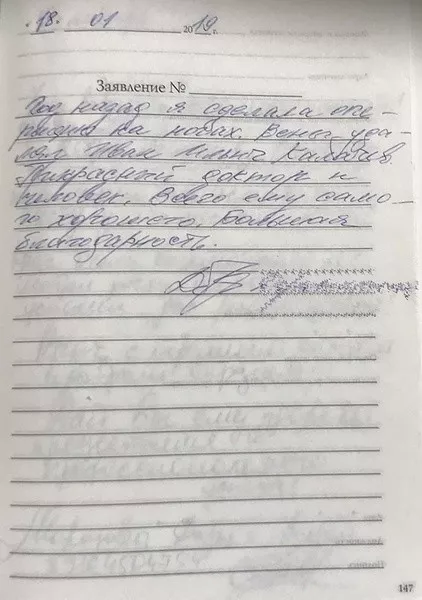 18. 01 2019 г.
Заявление №
Год назад я сделала опе-
рацию на ногах. Вены уда-
лял Иван Ильич Калачёв.
Прекрасный доктор и
человек. Всего ему само-
го хорошего. Большая
благодарность.
147